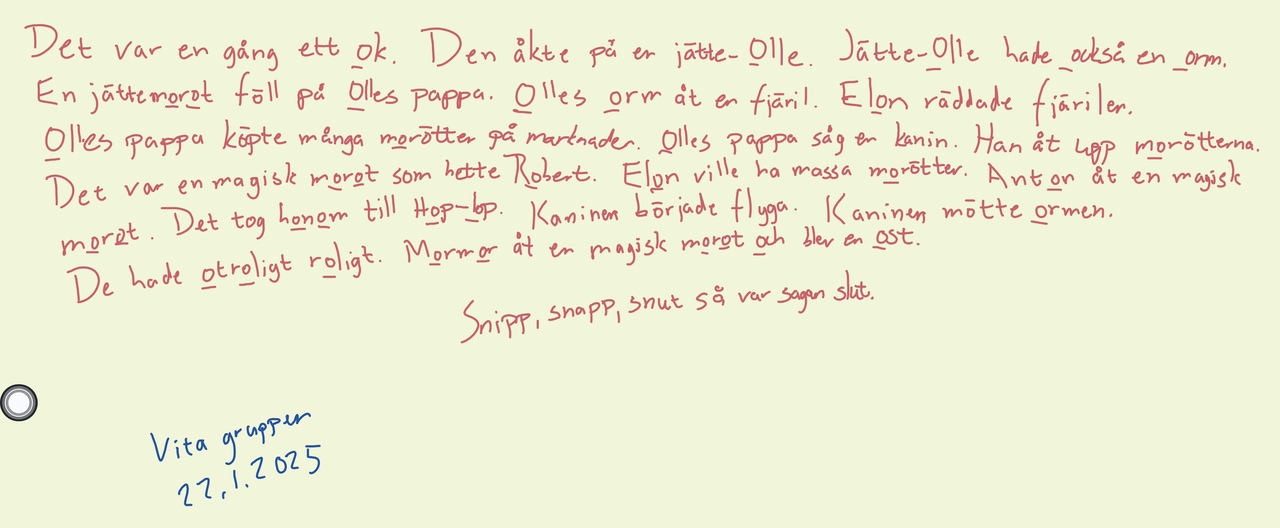 Det var en gång ett ok. Den åkte på en jätte-Olle. Jätte-Olle hade också en orm.
En jättemorot föll på Olles pappa. Olles orm åt en fjäril. Elon räddade fjärilen.
Olles pappa köpte många morötter på marknaden. Olles pappa såg en kanin. Han åt upp morötterna.
Det var en magisk morot som hette Robert. Elon ville ha massa morötter. Anton åt en magisk
morot. Det tog honom till Hop-lop. Kaninen började flyga. Kaninen mötte ormen.
De hade otroligt roligt. Mormor åt en magisk morot och blev en ost.
Snipp, snapp, snut så var sagan slut.
Vita gruppen
22.1.2025